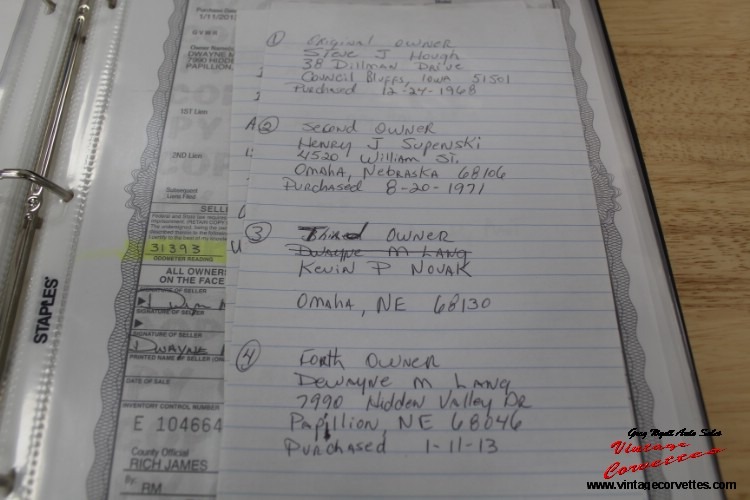 Purchase Date
1/11/201
G V W R
Owner Name(s)
DWAYNE M
7990 HIDD
PAPILLION,
1ST Lien
2ND Lien
Subsequent
Liens Filed
SELL
31393
ODOMETER READING
ALL OWNER
ON THE FACE
OF SELLER
SIGNATURE OF SELLER
SIGNATURE OF SELLER
DWAYNE
PRINTED NAME OF SELLER
DATE OF SALE
INVENTORY CONTROL NUMBER
E 104664
County Official
RICH JAMES
By:
RM
STAPLES
① Original Owner
Steve J Hough
38 Dillman Drive
Council Bluffs, Iowa 51501
Purchased 12-24-1968
② Second Owner
Henry J Supenski
4520 William St.
Omaha, Nebraska 68106
Purchased 8-20-1971
③ Third Owner
Dwayne M Lang
Kevin P Novak
Omaha, NE 68130
④ Forth Owner
Dewayne M Lang
7990 Hidden Valley Dr
Papillion, NE 68046
Purchased 1-11-13
Greg Wyatt Auto Sales
Vintage
Corvettes
www.vintagecorvettes.com